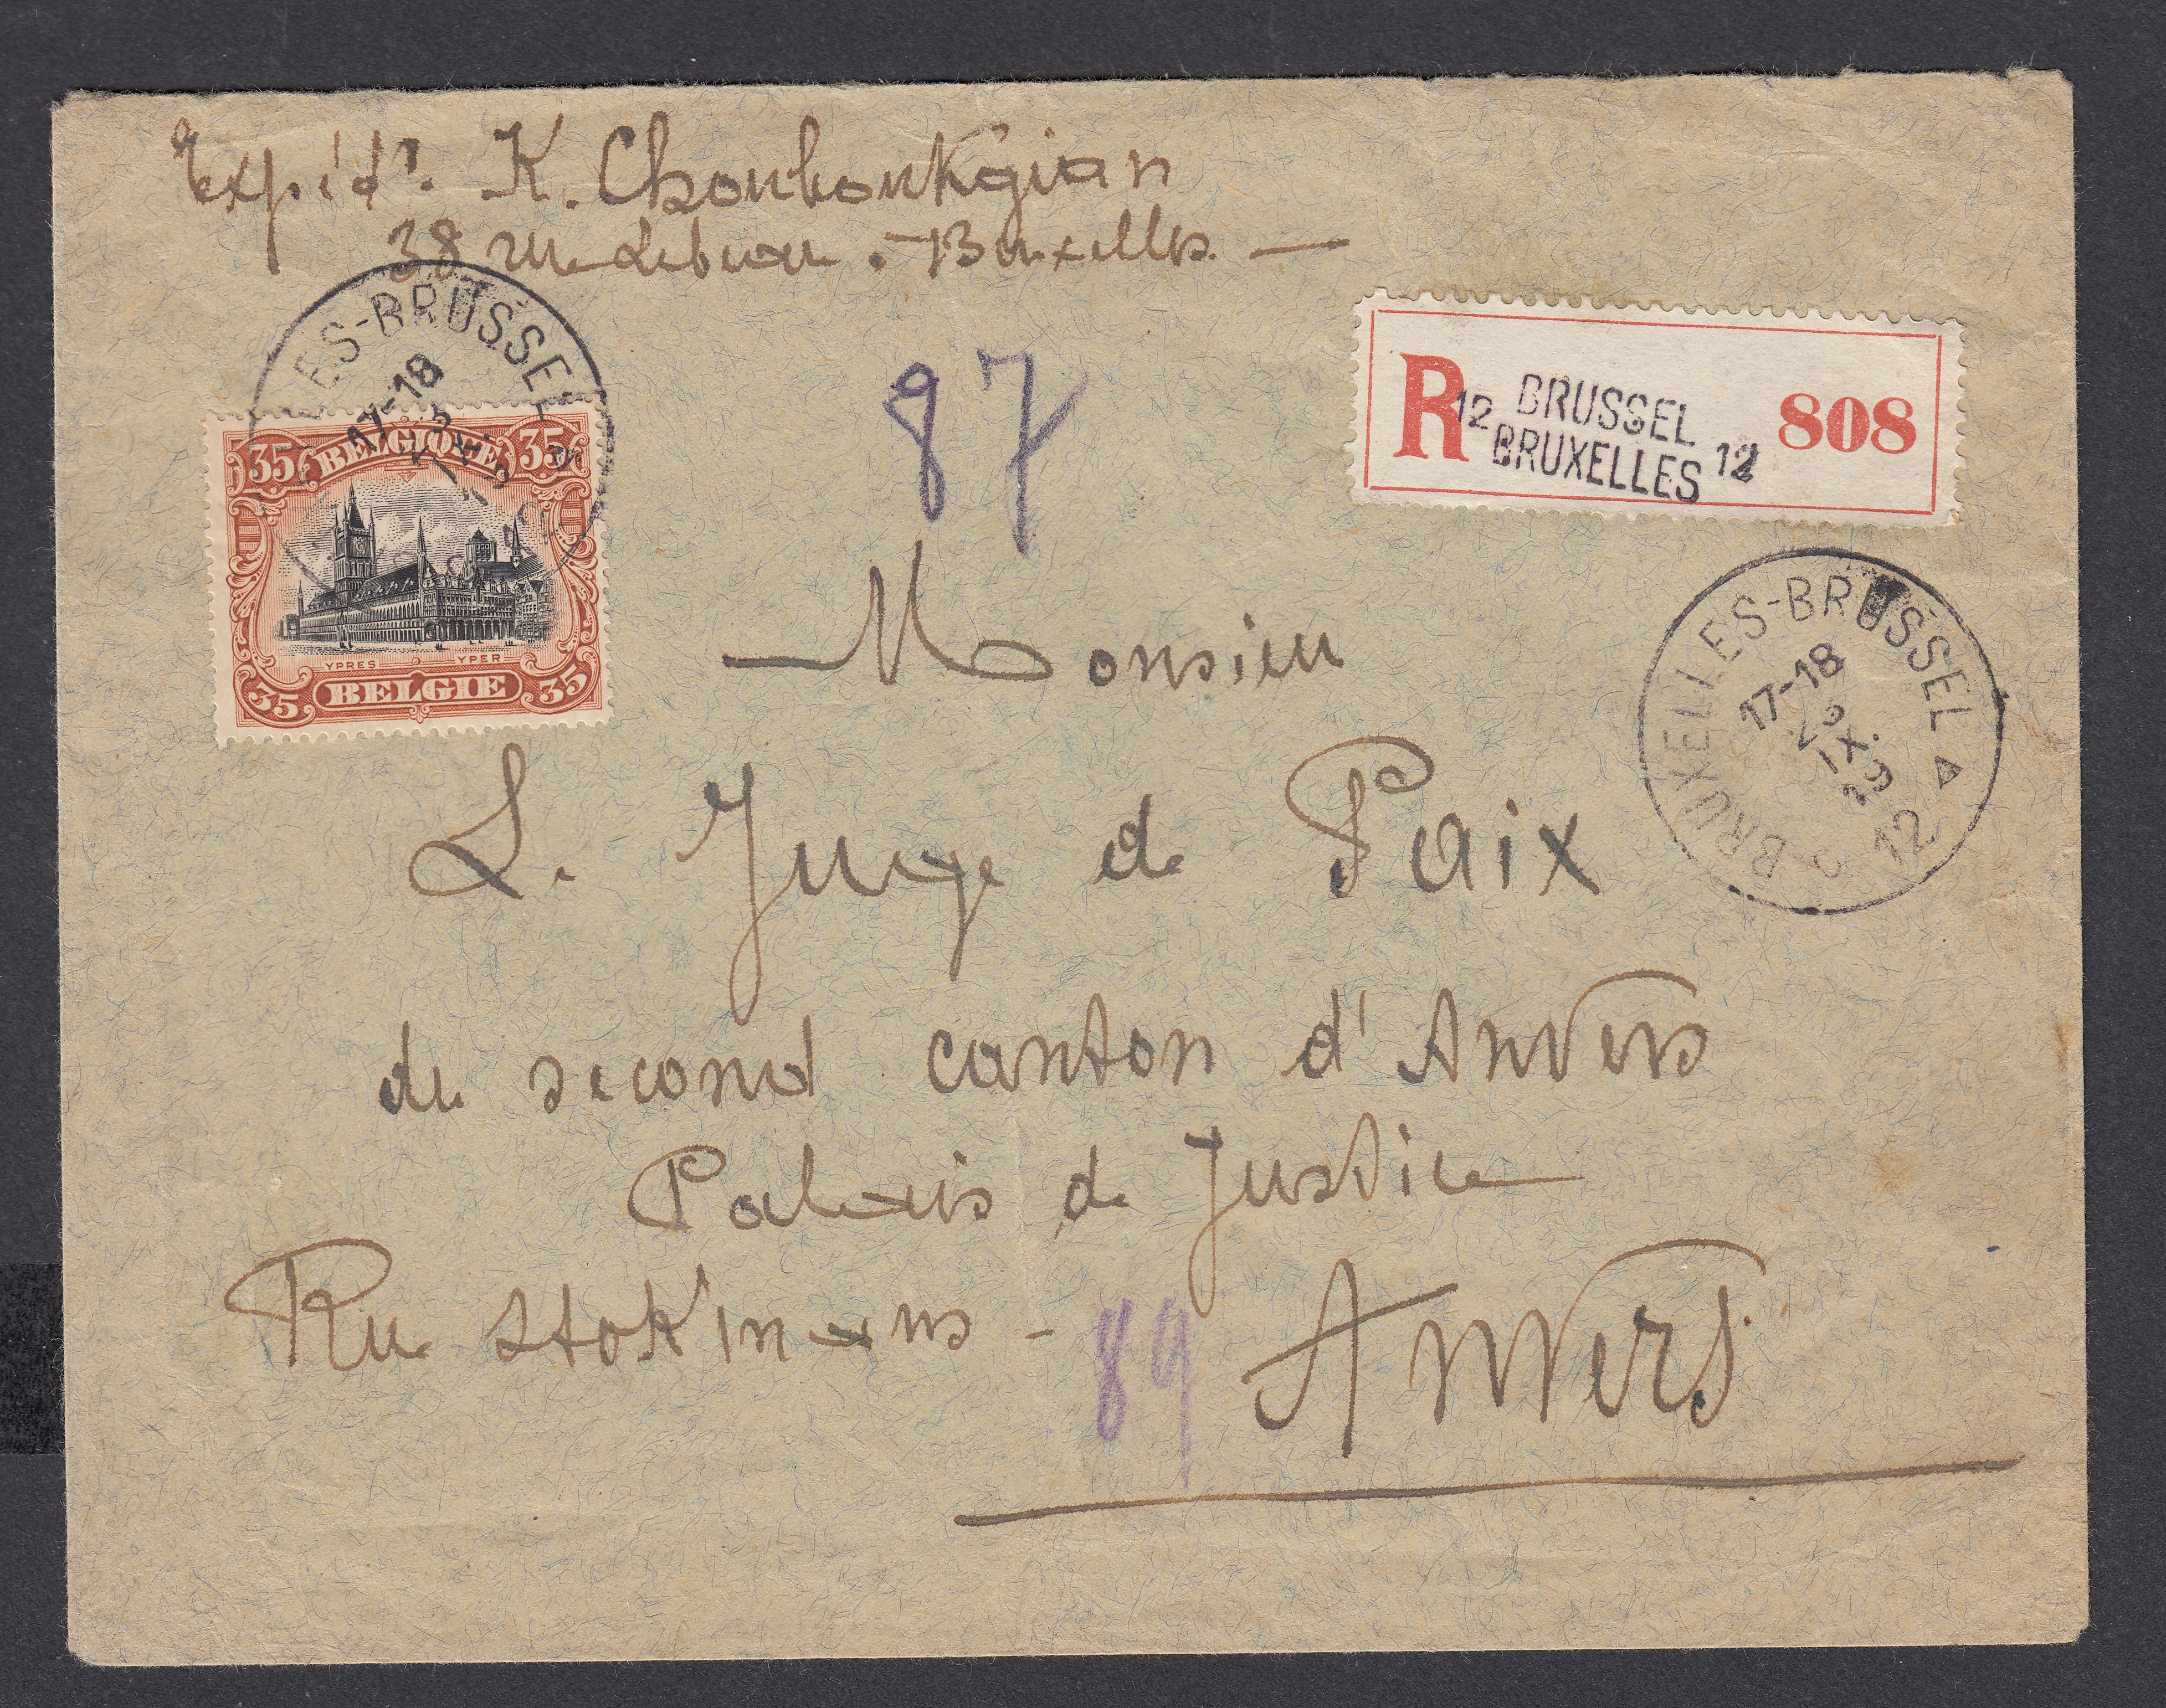 Expédr. K. Chouboukgian
38 rue Lebeau . Bruxelles. —
87
R 12 BRUSSEL
BRUXELLES 12 808
ES-BRUSSEL
17-18
35 BELGIQUE 35
YPRES YPER
35 BELGIE 35
BRUXELLES-BRUSSEL
17-18
IX.
12
Monsieur
Le Juge de Paix
du second canton d'Anvers
Palais de Justice
Rue Stok'inmans - 89 Anvers